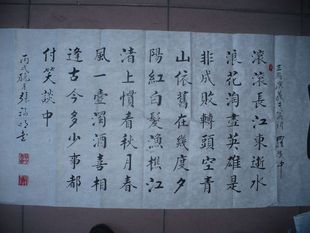 滾滾長江東逝水
浪花淘盡英雄是
非成敗轉頭空青
山依舊在幾度夕
陽紅白髮漁樵江
渚上慣看秋月春
風一壺濁酒喜相
逢古今多少事都
付笑談中